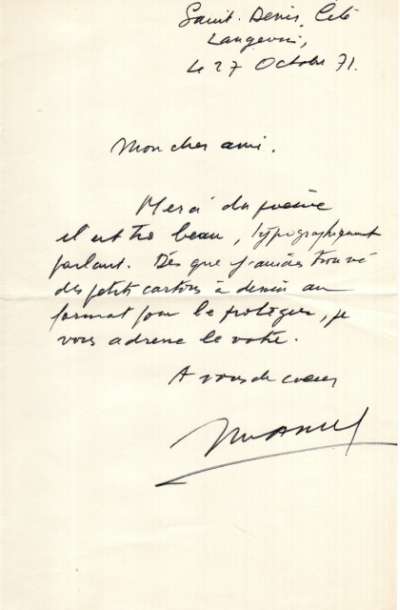 Saint-Denis, Cité
Langevin,
le 27 Octobre 71.
Mon cher ami.
Merci du poème
il est très beau, typographiquement
parlant. Dès que j'aurai trouvé
des petits cartons à dessin au
format pour le protéger, je
vous adresse le vôtre.
A vous de coeur